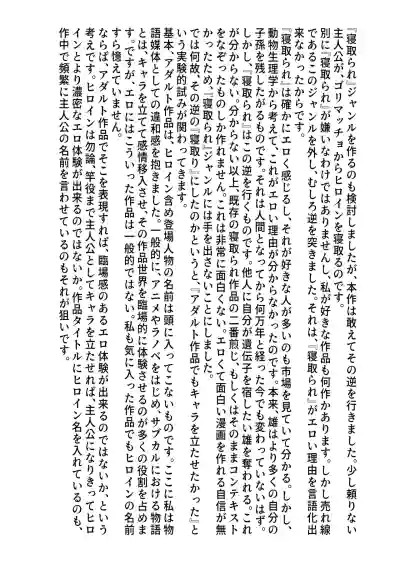 『寝取られ』ジャンルを作るのも検討しましたが、本作は敢えてその逆を行きました。少し頼りない
主人公が、ゴリマッチョからヒロインを寝取るのです。
別に『寝取られ』が嫌いなわけではありませんし、私が好きな作品も何作かあります。しかし売れ線
であるこのジャンルを外し、むしろ逆を突きました。それは、『寝取られ』がエロい理由を言語化出
来なかったからです。
『寝取られ』は確かにエロく感じるし、それが好きな人が多いのも市場を見ていて分かる。しかし、
動物生理学から考えて、これがエロい理由が分からなかったのです。本来、雄はより多くの自分の
子孫を残したがるものです。それは人間となってから何万年と経った今でも変わっていないはず。
しかし、『寝取られ』はこの逆を行くものです。他人に自分が遺伝子を宿したい雄を奪われる。これ
が分からない。分からない以上、既存の寝取られ作品の二番煎じ、もしくはそのままコンテキスト
をなぞったものしか作れません。これは非常に面白くない。エロくて面白い漫画を作れる自信が無
かったため、『寝取られ』ジャンルには手を出さないことにしました。
では何故、その逆の『寝取り』にしたのかというと、『アダルト作品でもキャラを立たせたかった』と
いう実験的試みが関わってきます。
基本、アダルト作品は、ヒロイン含め登場人物の名前は頭に入ってこないものです。ここに私は物
語媒体としての違和感を抱きました。一般的に、アニメやラノベをはじめ、サブカルにおける物語
とは、キャラを立てて感情移入させ、その作品世界を臨場的に体験させるのが多くの役割を占めま
す。ですが、エロにはこういった作品は一般的ではない。私も気に入った作品でもヒロインの名前
すら憶えていません。
ならば、アダルト作品でそこを表現すれば、臨場感のあるエロ体験が出来るのではないか、という
考えです。ヒロインは勿論、竿役まで主人公としてキャラを立たせれば、主人公になりきってヒロ
インとより濃密なエロ体験が出来るのではないか。作品タイトルにヒロイン名を入れているのも、
作中で頻繁に主人公の名前を言わせているのもそれが狙いです。